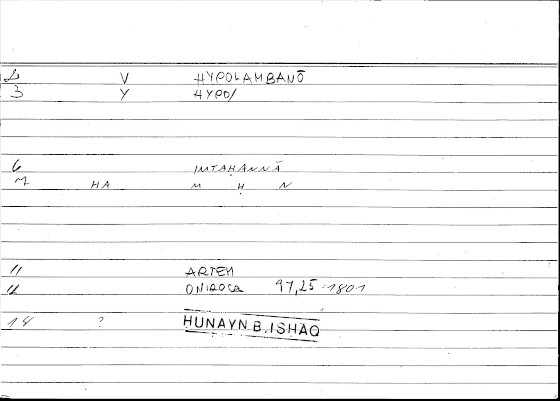 2 V HYPOLAMBANŌ
3 Y HYPO/
6 IMTAḤANNĀ
7 HA M Ḥ N
11 ARTEM
12 ONIROCR 97,25 1801
14 ? HUNAYN B. ISHAQ